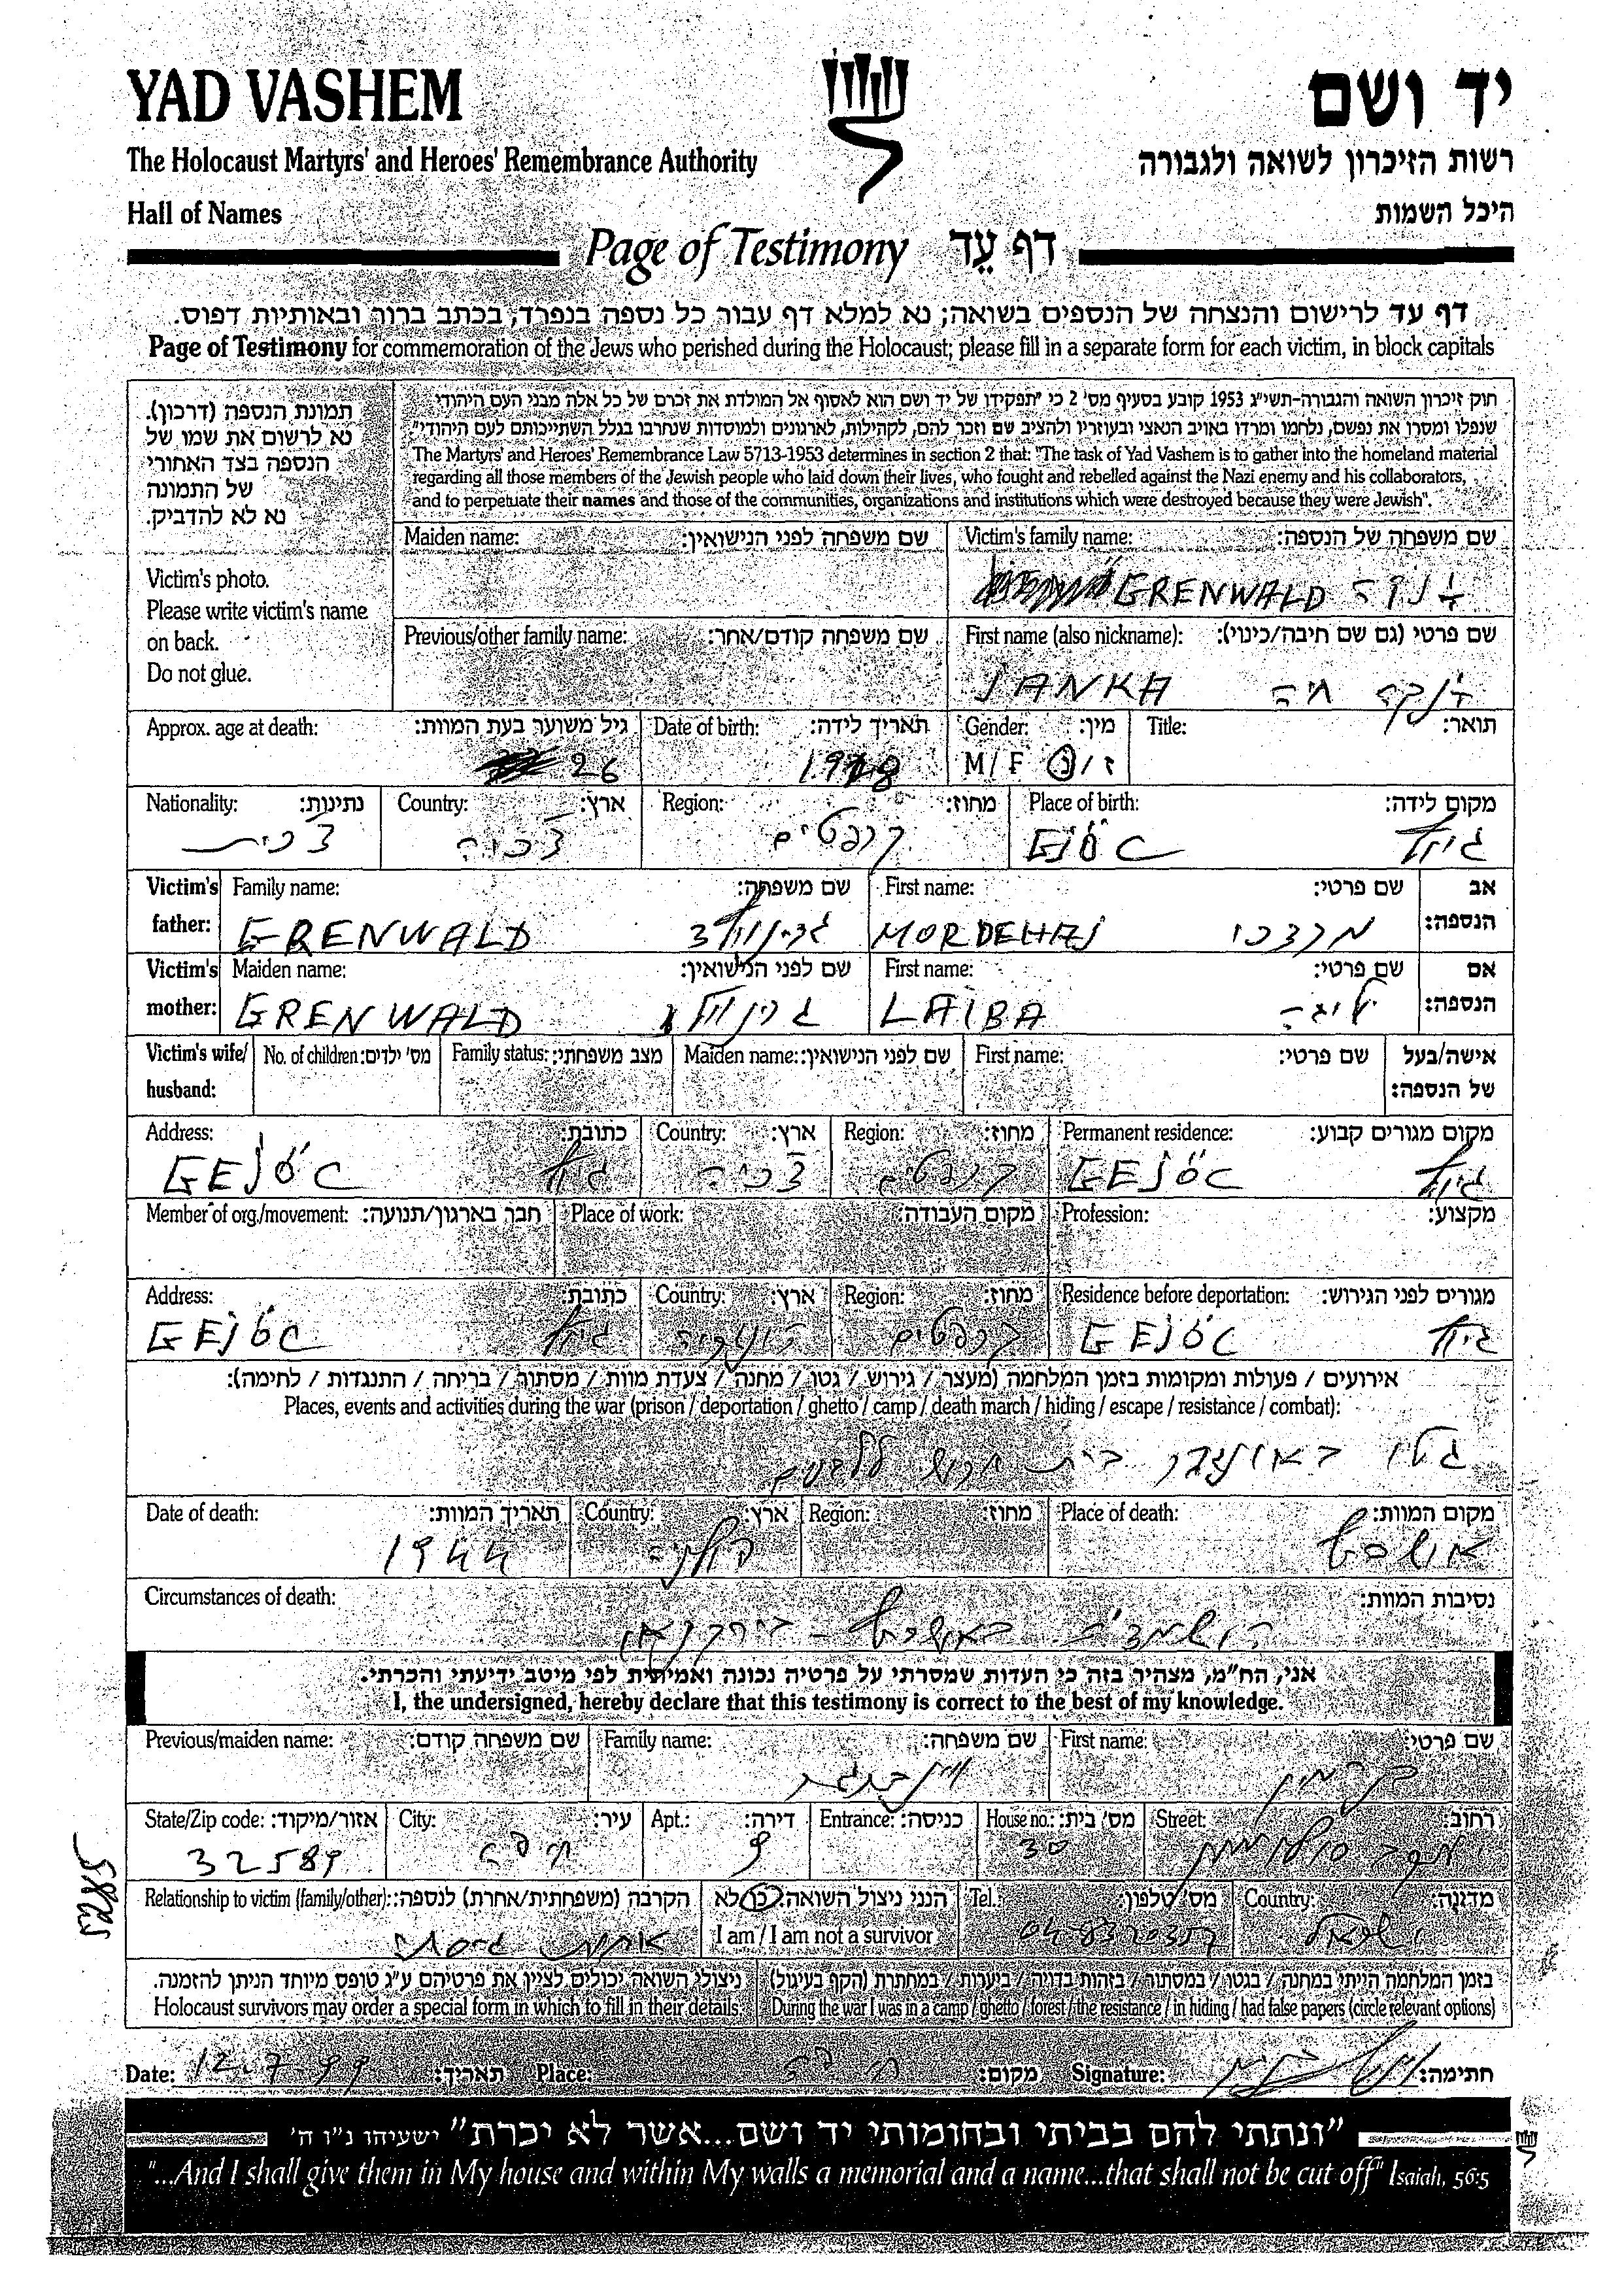 YAD VASHEM יד ושם
The Holocaust Martyrs' and Heroes' Remembrance Authority רשות הזיכרון לשואה ולגבורה
Hall of Names היכל השמות
Page of Testimony דף עֵד
דף עד לרישום והנצחה של הנספים בשואה; נא למלא דף עבור כל נספה בנפרד, בכתב ברור ובאותיות דפוס.
Page of Testimony for commemoration of the Jews who perished during the Holocaust; please fill in a separate form for each victim, in block capitals
תמונת הנספה (דרכון).
נא לרשום את שמו של
הנספה בצד האחורי
של התמונה
נא לא להדביק.
Victim's photo.
Please write victim's name
on back.
Do not glue.
חוק זיכרון השואה והגבורה-תשי"ג 1953 קובע בסעיף מס' 2 כי "תפקידו של יד ושם הוא לאסוף אל המולדת את זכרם של כל אלה מבני העם היהודי
שנפלו ומסרו את נפשם, נלחמו ומרדו באויב הנאצי ובעוזריו ולהציב שם וזכר להם, לקהילות, לארגונים ולמוסדות שנחרבו בגלל השתייכותם לעם היהודי"
The Martyrs' and Heroes' Remembrance Law 5713-1953 determines in section 2 that: "The task of Yad Vashem is to gather into the homeland material
regarding all those members of the Jewish people who laid down their lives, who fought and rebelled against the Nazi enemy and his collaborators,
and to perpetuate their names and those of the communities, organizations and institutions which were destroyed because they were Jewish".
Maiden name: שם משפחה לפני הנישואין: Victim's family name: שם משפחה של הנספה:
GRENWALD
Previous/other family name: שם משפחה קודם/אחר: First name (also nickname): שם פרטי (גם שם חיבה/כינוי):
JANKA חיה
Approx. age at death: גיל משוער בעת המוות: Date of birth: תאריך לידה: Gender: מין: Title: תואר:
26 1918 M/F ז/נ
Nationality: נתינות: Country: ארץ: Region: מחוז: Place of birth: מקום לידה:
צ'כית צ'כיה קרפטים GJÖC
Victim's father: Family name: שם משפחה: First name: שם פרטי: אב הנספה:
GRENWALD גרינוולד MORDEHAJ מרדכי
Victim's mother: Maiden name: שם לפני הנישואין: First name: שם פרטי: אם הנספה:
GRENWALD גרינוולד LAIBA
Victim's wife/husband: No. of children: מס' ילדים: Family status: מצב משפחתי: Maiden name: שם לפני הנישואין: First name: שם פרטי: אישה/בעל של הנספה:
Address: כתובת: Country: ארץ: Region: מחוז: Permanent residence: מקום מגורים קבוע:
GEJÖC צ'כיה קרפטים GEJÖC
Member of org./movement: חבר בארגון/תנועה: Place of work: מקום העבודה: Profession: מקצוע:
Address: כתובת: Country: ארץ: Region: מחוז: Residence before deportation: מגורים לפני הגירוש:
GEJÖC הונגריה קרפטים GEJÖC
אירועים / פעולות ומקומות בזמן המלחמה (מעצר / גירוש / גטו / מחנה / צעדת מוות / מסתור / בריחה / התנגדות / לחימה):
Places, events and activities during the war (prison / deportation / ghetto / camp / death march / hiding / escape / resistance / combat):
גטו באונגוואר בית חרושת ללבנים
Date of death: תאריך המוות: Country: ארץ: Region: מחוז: Place of death: מקום המוות:
1944 פולניה אושביץ
Circumstances of death: נסיבות המוות:
הושמדה באושביץ - בירקנאו
אני, הח"מ, מצהיר בזה כי העדות שמסרתי על פרטיה נכונה ואמיתית לפי מיטב ידיעתי והכרתי.
I, the undersigned, hereby declare that this testimony is correct to the best of my knowledge.
Previous/maiden name: שם משפחה קודם: Family name: שם משפחה: First name: שם פרטי:
בנימין
State/Zip code: אזור/מיקוד: City: עיר: Apt.: דירה: Entrance: כניסה: House no.: מס' בית: Street: רחוב:
32589 חיפה 9 30
Relationship to victim (family/other): הקרבה (משפחתית/אחרת) לנספה: הנני ניצול השואה: כן/לא Tel.: מס' טלפון: Country: מדינה:
I am / I am not a survivor
אחות גיסתי ישראל
ניצולי השואה יכולים לציין את פרטיהם ע"ג טופס מיוחד הניתן להזמנה. בזמן המלחמה הייתי במחנה / בגטו / במסתור / בזהות בדויה / ביערות / במחתרת (הקף בעיגול)
Holocaust survivors may order a special form in which to fill in their details. During the war I was in a camp / ghetto / forest / the resistance / in hiding / had false papers (circle relevant options)
Date: 12-7-99 תאריך: Place: חיפה מקום: Signature: חתימה:
"ונתתי להם בביתי ובחומותי יד ושם...אשר לא יכרת" ישעיהו נ"ו ה'
"...And I shall give them in My house and within My walls a memorial and a name...that shall not be cut off" Isaiah, 56:5